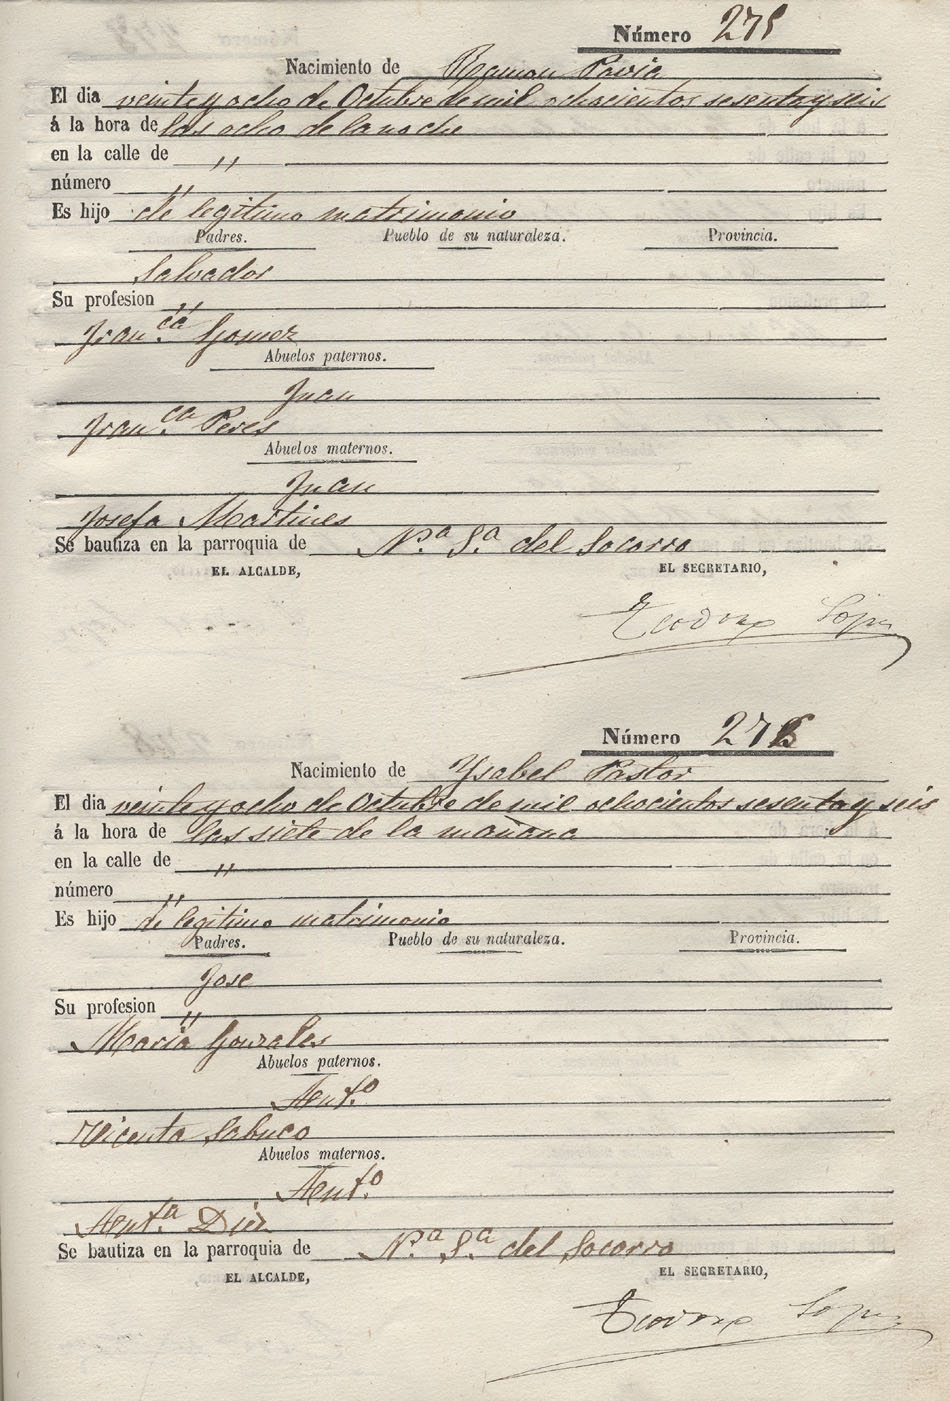 Número 275
Nacimiento de Ramon Pavia
El dia veinte y ocho de Octubre de mil ochocientos sesenta y seis
á la hora de las ocho de la noche
en la calle de "
número "
Es hijo de legitimo matrimonio
Padres. Pueblo de su naturaleza. Provincia.
Salvador
Su profesion "
Fran.ca Gomez
Abuelos paternos.
Juan
Fran.ca Peres
Abuelos maternos.
Juan
Josefa Martines
Se bautiza en la parroquia de N.a S.a del Socorro
EL ALCALDE, EL SECRETARIO,
Teodoro Lopez
Número 276
Nacimiento de Ysabel Pastor
El dia veinte y ocho de Octubre de mil ochocientos sesenta y seis
á la hora de las siete de la mañana
en la calle de "
número "
Es hijo de legitimo matrimonio
Padres. Pueblo de su naturaleza. Provincia.
Jose
Su profesion "
Maria Gonzales
Abuelos paternos.
Ant.o
Vicenta Sabuco
Abuelos maternos.
Ant.o
Ant.a Diez
Se bautiza en la parroquia de N.a S.a del Socorro
EL ALCALDE, EL SECRETARIO,
Teodoro Lopez